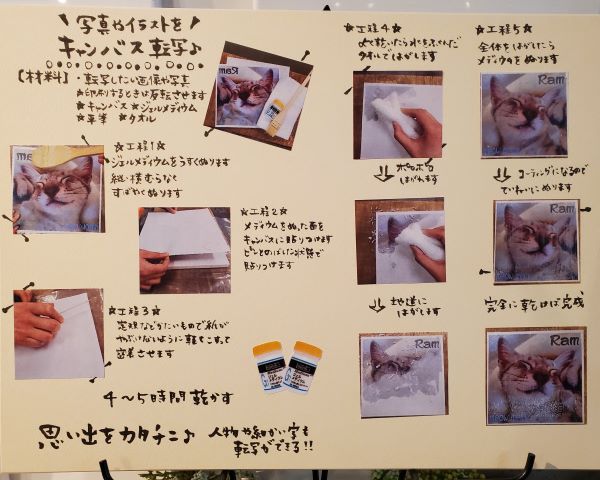 写真やイラストを
キャンバス転写♪
【材料】・転写したい画像や写真
★印刷するときは反転させます
★キャンバス ★ジェルメディウム
★平筆 ★タオル
★工程1★
ジェルメディウムをうすくぬります
縦・横むらなく
すばやくぬります
★工程2★
メディウムをぬった面を
キャンバスに貼りつけます
ピンとのばした状態で
貼りつけます
★工程3★
定規などかたいもので紙が
やぶけないように軽くこすって
密着させます
4〜5時間乾かす
思い出をカタチニ♪
人物や細かい字も
転写ができる!!
★工程4★
よく乾いたら水をふくんだ
タオルではがします
ポロポロ
はがれます
地道に
はがします
Ram
★工程5★
全体をはがしたら
メディウムをぬります
Ram
コーティングになるので
ていねいにぬります
Ram
完全に乾けば完成
Ram